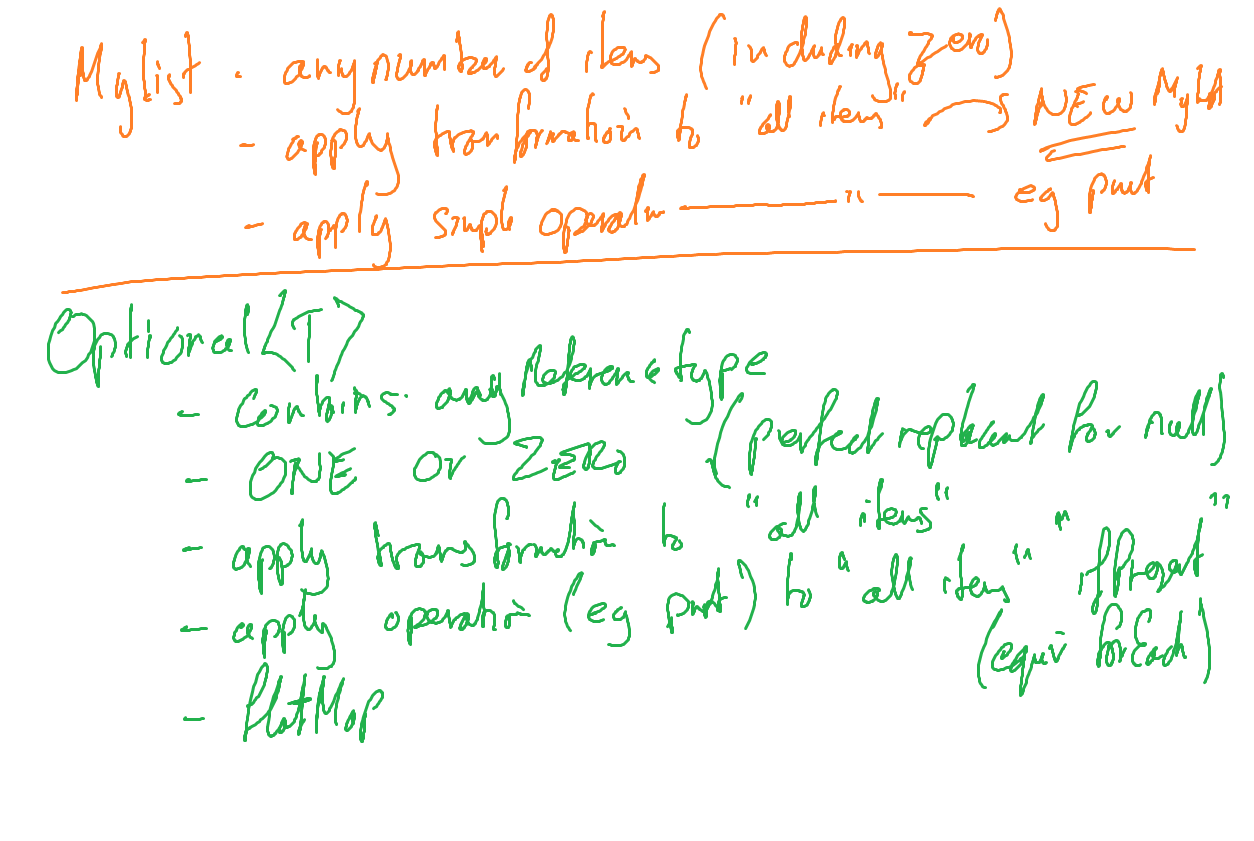 Mylist - any number of items (including zero)
- apply transformation to "all items" → NEW MyLst
- apply simple operatn ——— " ——— eg print
Optional<T>
- contains any Reference type
- ONE or ZERO (perfect replacemt for null)
- apply transformation to "all items"
- apply operation (eg print) to "all items" "ifPresent"
(equiv forEach)
- flatMap